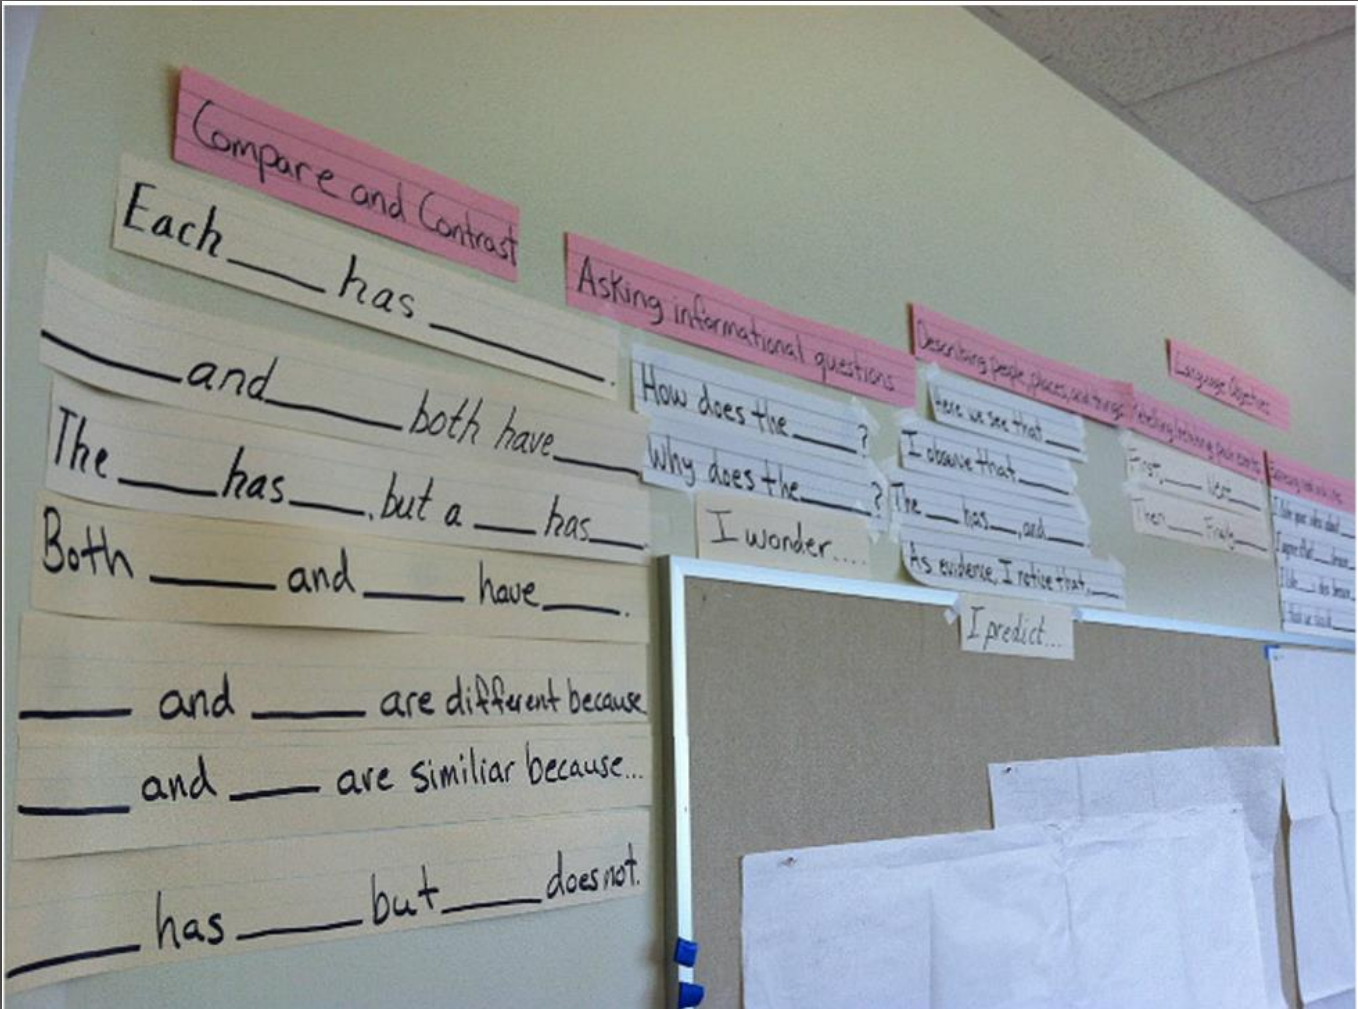 Compare and Contrast
Each ____ has ____.
____ and ____ both have ____
The ____ has ____, but a ____ has ____
Both ____ and ____ have ____.
____ and ____ are different because
____ and ____ are similiar because...
____ has ____ but ____ does not.
Asking informational questions
How does the ____?
Why does the ____?
I wonder....
Describing people, places, and things
Here we see that ____
I observe that ____
The ____ has ____, and ____
As evidence, I notice that ____
I predict...
Language Objectives
Retelling/relating past events
First, ____ Next ____
Then ____ Finally ____
I like your idea about ____
I agree that ____ because
I like ____ idea because